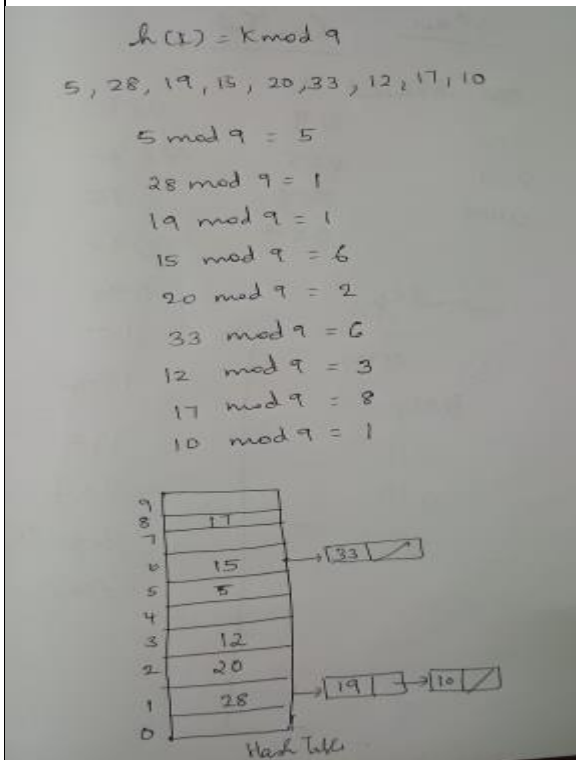 h(I) = K mod 9
5, 28, 19, 15, 20, 33, 12, 17, 10
5 mod 9 = 5
28 mod 9 = 1
19 mod 9 = 1
15 mod 9 = 6
20 mod 9 = 2
33 mod 9 = 6
12 mod 9 = 3
17 mod 9 = 8
10 mod 9 = 1
9
8 17
7
6 15 33
5 5
4
3 12
2 20
1 28 19 10
0
Hash Table